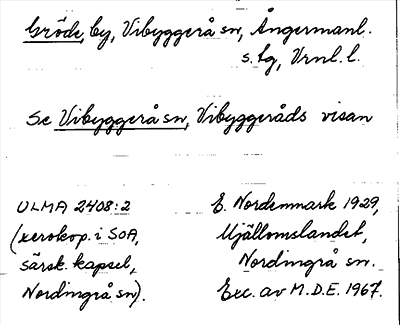 Gröde, by, Vibyggerå sn, Ångermanl.
s. hg, Vrnl. l.
Se Vibyggerå sn, Vibyggeråds visan
ULMA 2408:2
(xerokop. i SOA,
särsk. kapsel,
Nordingrå sn).
E. Nordenmark 1929,
Mjällomslandet,
Nordingrå sn.
Exc. av M.D.E. 1967.